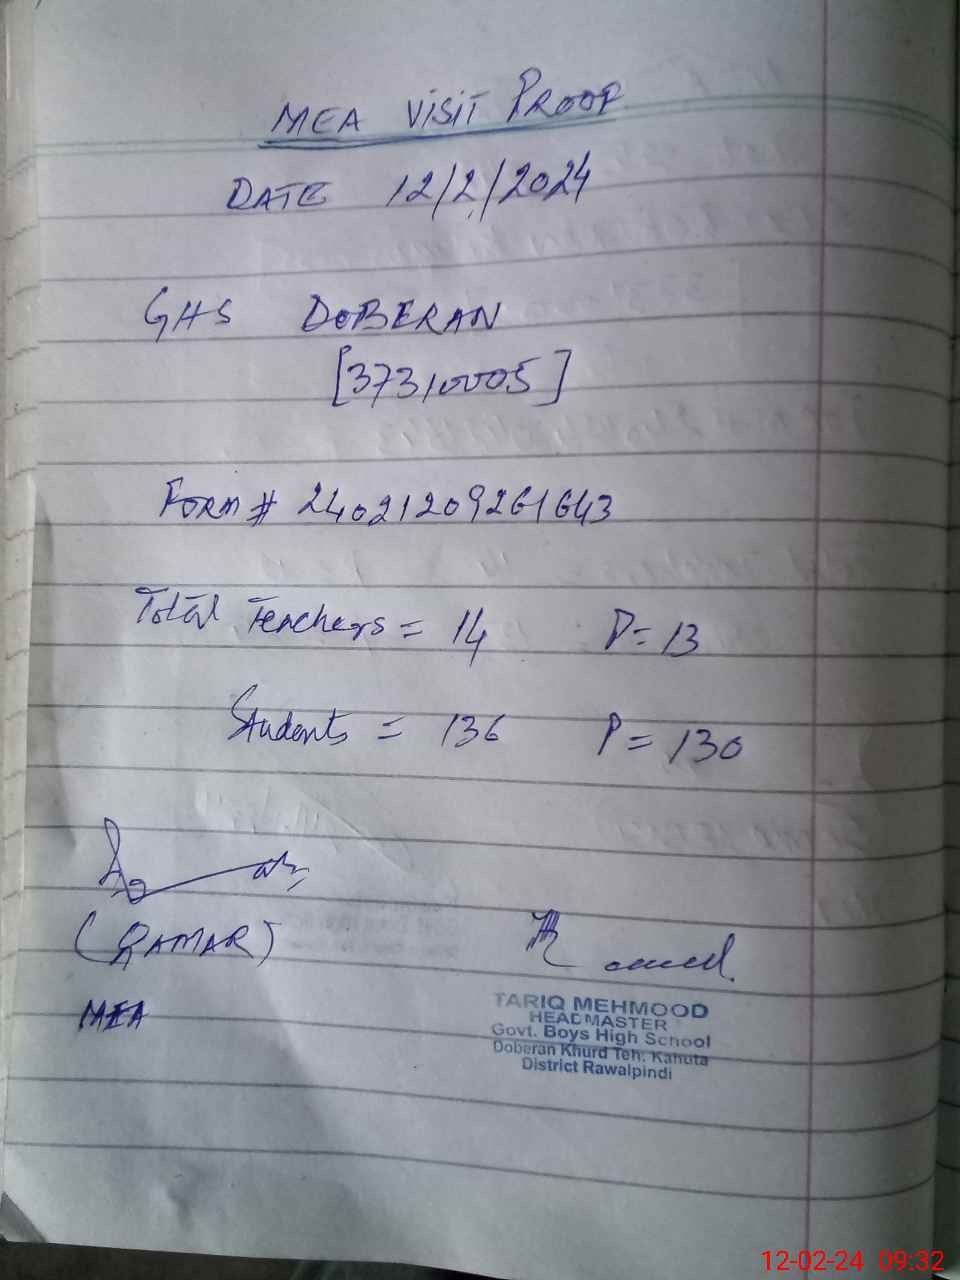 MEA VISIT PROOF
DATE 12/2/2024
GHS DOBERAN
[37310005]
FORM # 24021209261643
Total Teachers = 14 P = 13
Students = 136 P = 130
(QAMAR)
MEA
TARIQ MEHMOOD
HEADMASTER
Govt. Boys High School
Doberan Khurd Teh: Kahuta
District Rawalpindi
12-02-24 09:32